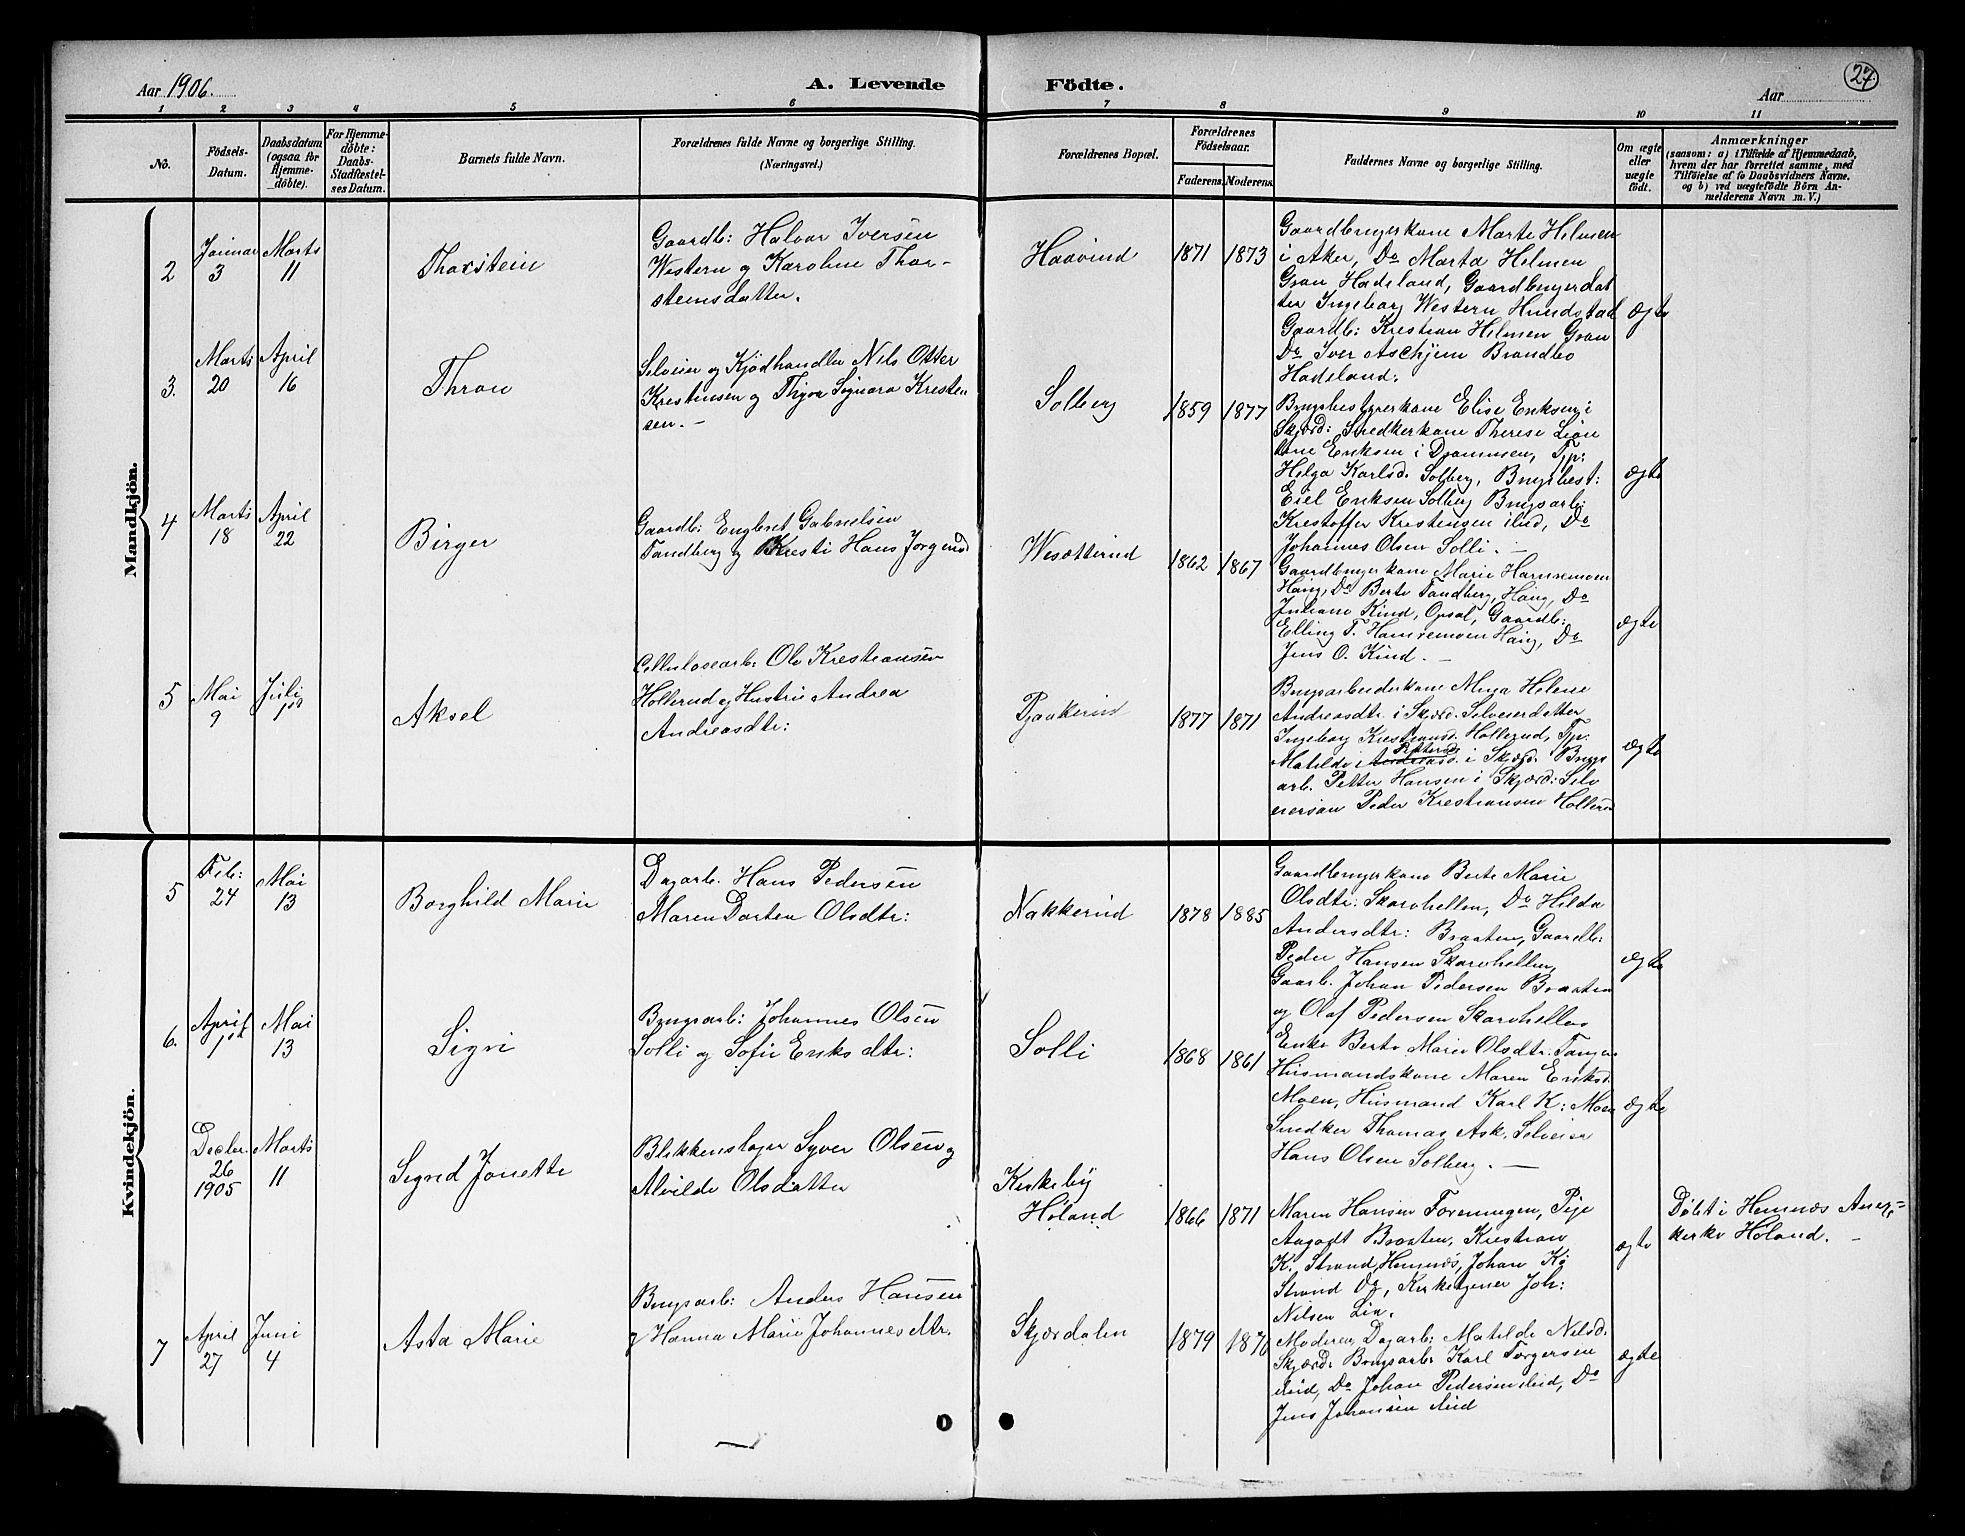 Aar 1906.
A. Levende
Födte.
Aar
27
1 2 3 4 5 6 7 8 9 10 11
No.
Födsels-
Datum.
Daabsdatum
(ogsaa for
Hjemme-
döbte).
For Hjemme-
döbte:
Daabs-
Stadfæstel-
ses Datum.
Barnets fulde Navn.
Forældrenes fulde Navne og borgerlige Stilling.
(Næringsvei.)
Forældrenes Bopæl.
Forældrenes
Födselsaar.
Faderens.
Moderens.
Faddernes Navne og borgerlige Stilling.
Om ægte
eller
uægte
födt.
Anmærkninger
(saasom: a) i Tilfælde af Hjemmedaab,
hvem der har forrettet samme, med
Tilföielse af to Daabsvidners Navne.
og b) ved uægtefödte Börn An-
melderens Navn m. V.)
Mandkjön.
2
Januar
3
Marts
11
Thorstein
Gaardb: Halvor Iversen
Western og Karoline Thor-
steinsdatter.
Haavind
1871
1873
Gaardbrugerkone Marte Helmen
i Aker, Do Marta Helmen
Gran Hadeland, Gaardbrugerdat
ter Ingeborg Western Hundstad
Gaardb: Kristian Helmen Gran
Do Iver Aschjem Brandbo
Hadeland.
ægte
3.
Marts
20
April
16
Thron
Selveier og Kjødhandler Nils Otter
Kristensen og Thyra Signora Kristen
sen. -
Solberg
1859
1877
Brugsbestyrerkone Elise Eriksen i
Skjærd: Snedkerkone Therese
Eriksen i Drammen, Tp:
Helga Karlsd. Solberg, Brugsbest:
Eriksen Solberg Brugsarb:
Kristoffer Kristensen ibid, Do
Johannes Olsen Solli. -
ægte
4
Marts
18
April
22
Birger
Gaardb: Engbret Gabrielsen
Tandberg og Kristi Hans Jørgensd
Wesætterud
1862
1867
Gaardbrugerkone Marie Hamremoen
Haug, Do Berte Tandberg, Haug, Do
Juliane Kind, Opsal, Gaardb:
Elling T. Hamremoen Haug, Do
Jens O. Kind. -
ægte
5
Mai
9
Juli
1st
Aksel
Cellulosearb: Ole Kristiansen
Hollerud og Hustru Andrea
Andreasdtr:
Tjaakerud
1877
1871
Brugsarbeiderkone Helene
Andreasdtr. i Skjærd. Selveierdatter
Ingeborg Kristiansd. Hollerud, Tp:
Matilde i Skjærd. Brugs
arb. Petter Hansen i Skjærd: Selv
eiersøn Peder Kristiansen Hollerud
ægte
Kvindekjön.
5
Feb:
24
Mai
13
Borghild Marie
Dagarb. Hans Pedersen
Maren Dorten Olsdtr:
Nakkerud
1878
1885
Gaardbrugerkone Berte Marie
Olsdtr: Skarvhellen, Do Hilda
Andersdtr: Braaten, Gaardb:
Peder Hansen Skarvhellen,
Gaarb. Johan Pedersen Braaten
og Olaf Pedersen Skarvhellen
ægte
6.
April
1st
Mai
13
Sigri
Brugsarb: Johannes Olsen
Solli og Sofie Eriksdtr:
Solli
1868
1861
Enke Berte Marie Olsdtr: Tangen
Husmandskone Maren Eriksd.
Moen, Husmand Karl K: Moen
Snedker Thomas Ask, Selveier
Hans Olsen Solberg. -
ægte
Decbr.
26
1905
Marts
11
Signd Jonette
Blikkenslager Syver Olsen og
Alvilde Olsdatter
Kirkeby
Høland
1866
1871
Maren Hansen Foreningen, Pige
Aagodt Braaten, Kristian
K. Strand, Hemnæs, Johan K.
Strand Do, Kirketjener Joh:
Nilsen Lia.
ægte
Døbt i Hemnæs Anex-
kirke Høland. -
7
April
27
Juni
4
Asta Marie
Brugsarb: Anders Hansen
og Hanna Marie Johannesdtr.
Skjærdalen
1879
1876
Moderen, Dagarb: Matilde Nilsd.
Skjærd: Brugsarb: Karl Torgersen
ibid, Do Johan Pedersen ibid, Do
Jens Johansen ibid
ægte